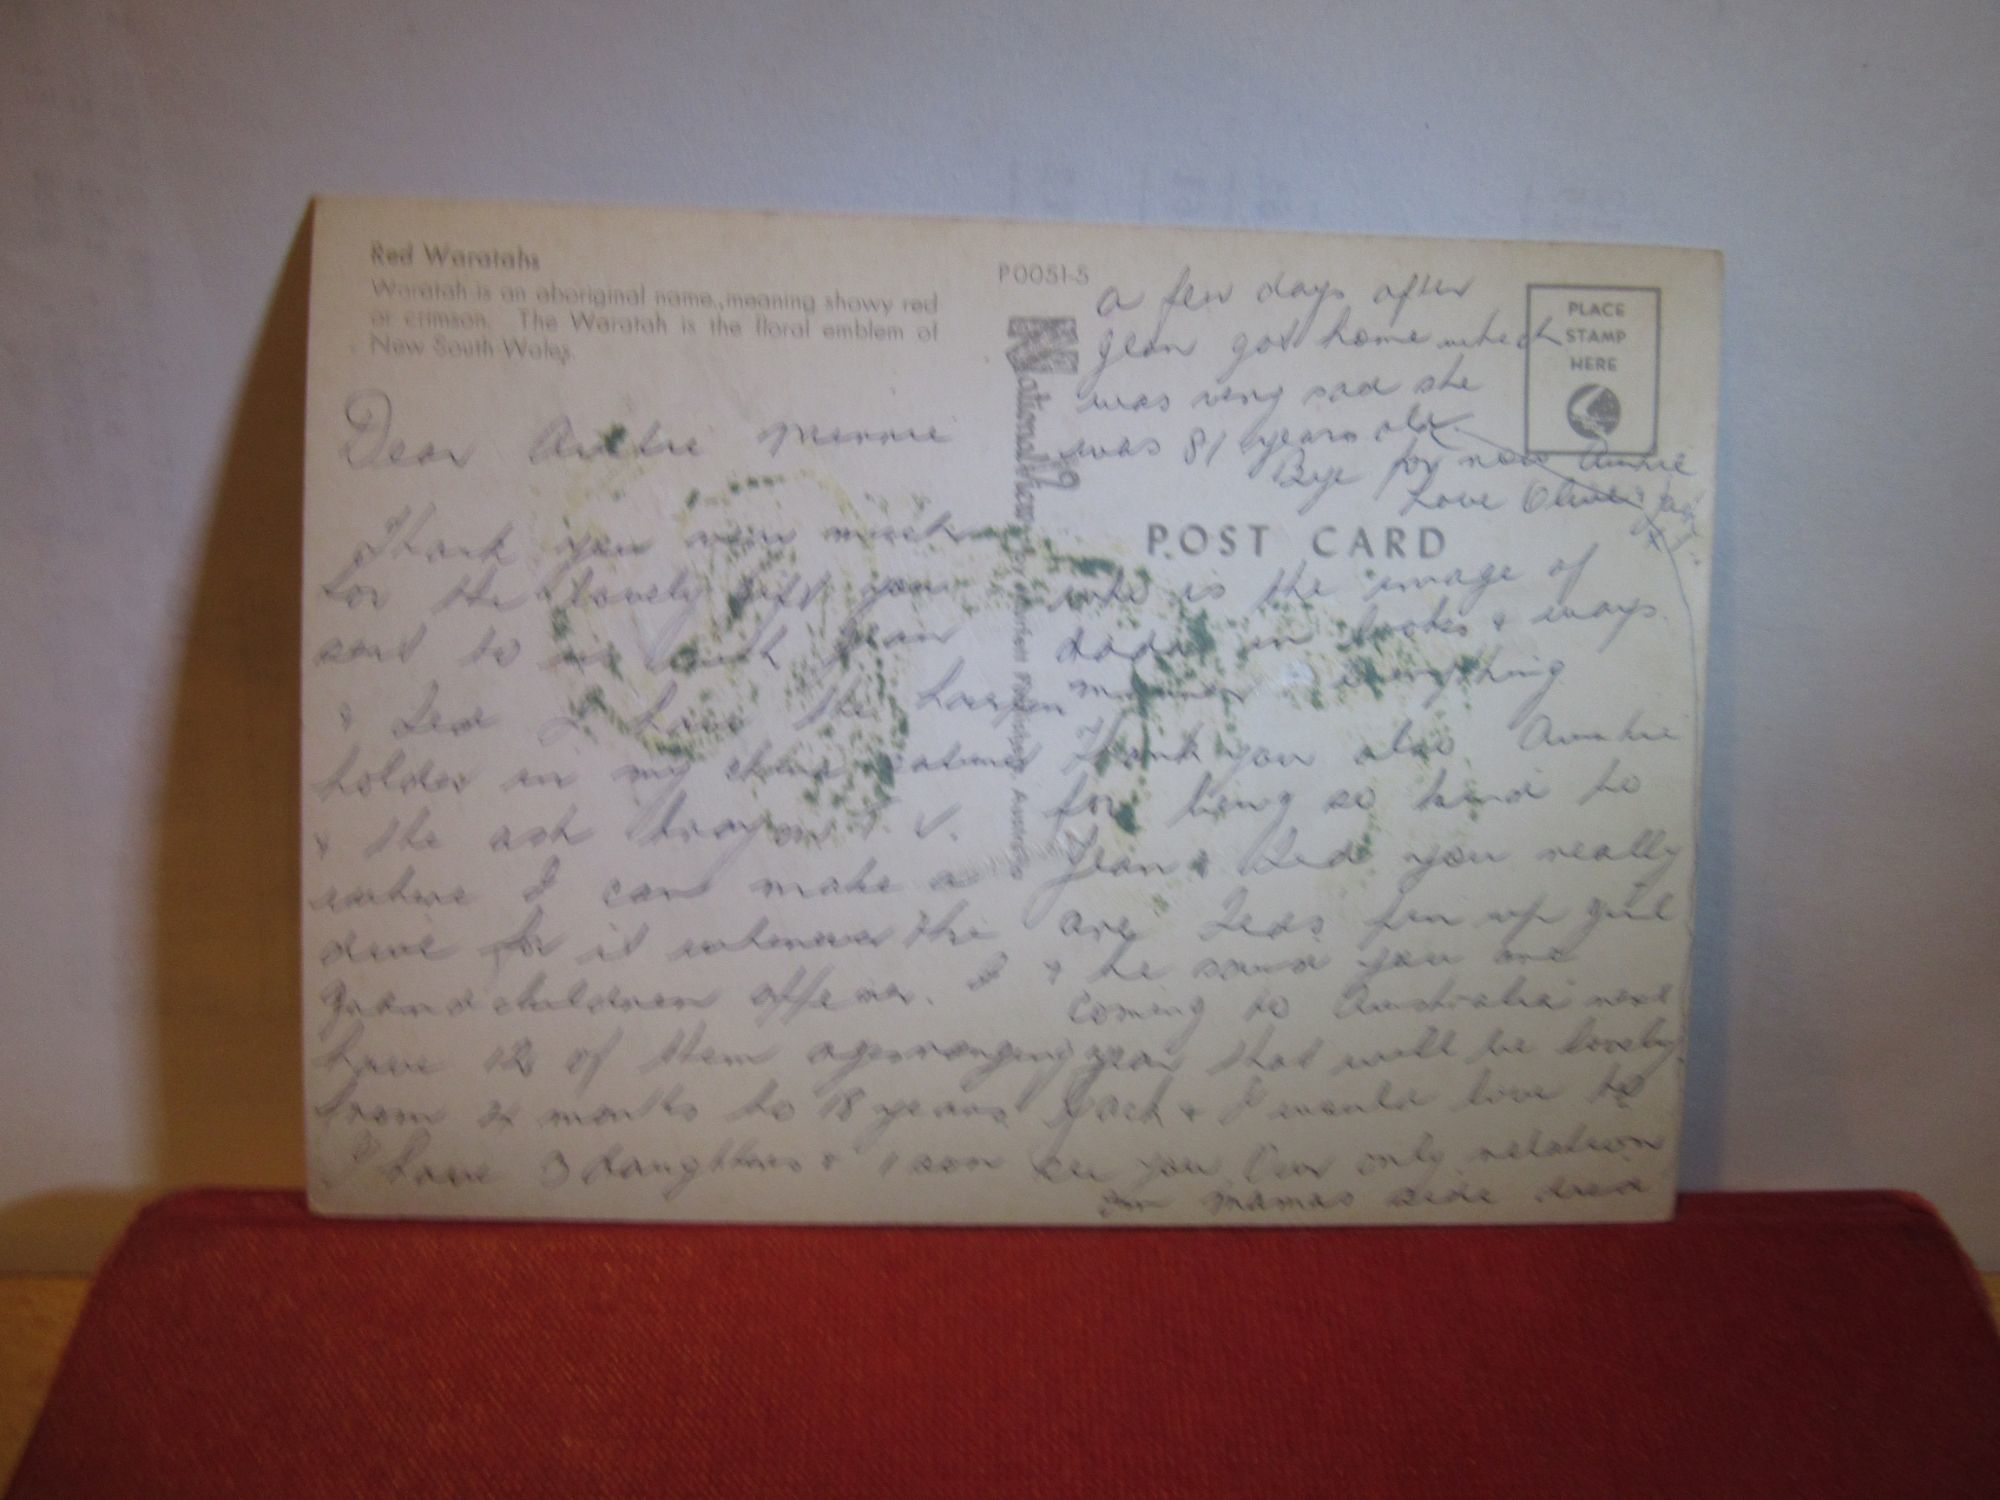 Red Waratahs
Waratah is an aboriginal name, meaning showy red
or crimson. The Waratah is the floral emblem of
New South Wales.
Dear Auntie Minnie
Thank you very much
for the lovely gift you
sent to me with Jean
& Ted I have the
holder in my china cabinet
& the ash tray on T.V.
where I can make a
dive for it whenever the
grandchildren offer me. I
have 12 of them ages ranging
from 2½ months to 18 years
I have 3 daughters & 1 son
who is the image of
dada in looks & ways
manner & everything
Thank you also Auntie
for being so kind to
Jean & Ted you really
are Teds pin up girl
& he said you are
coming to Australia next
year that will be lovely
Jack & I would love to
see you. Our only relation
on mamas side died
P0051-5
a few days after
Jean got home which
was very sad she
was 81 years old.
Bye for now Auntie
Love Olive & Jack
PLACE
STAMP
HERE
POST CARD
National View
Australia